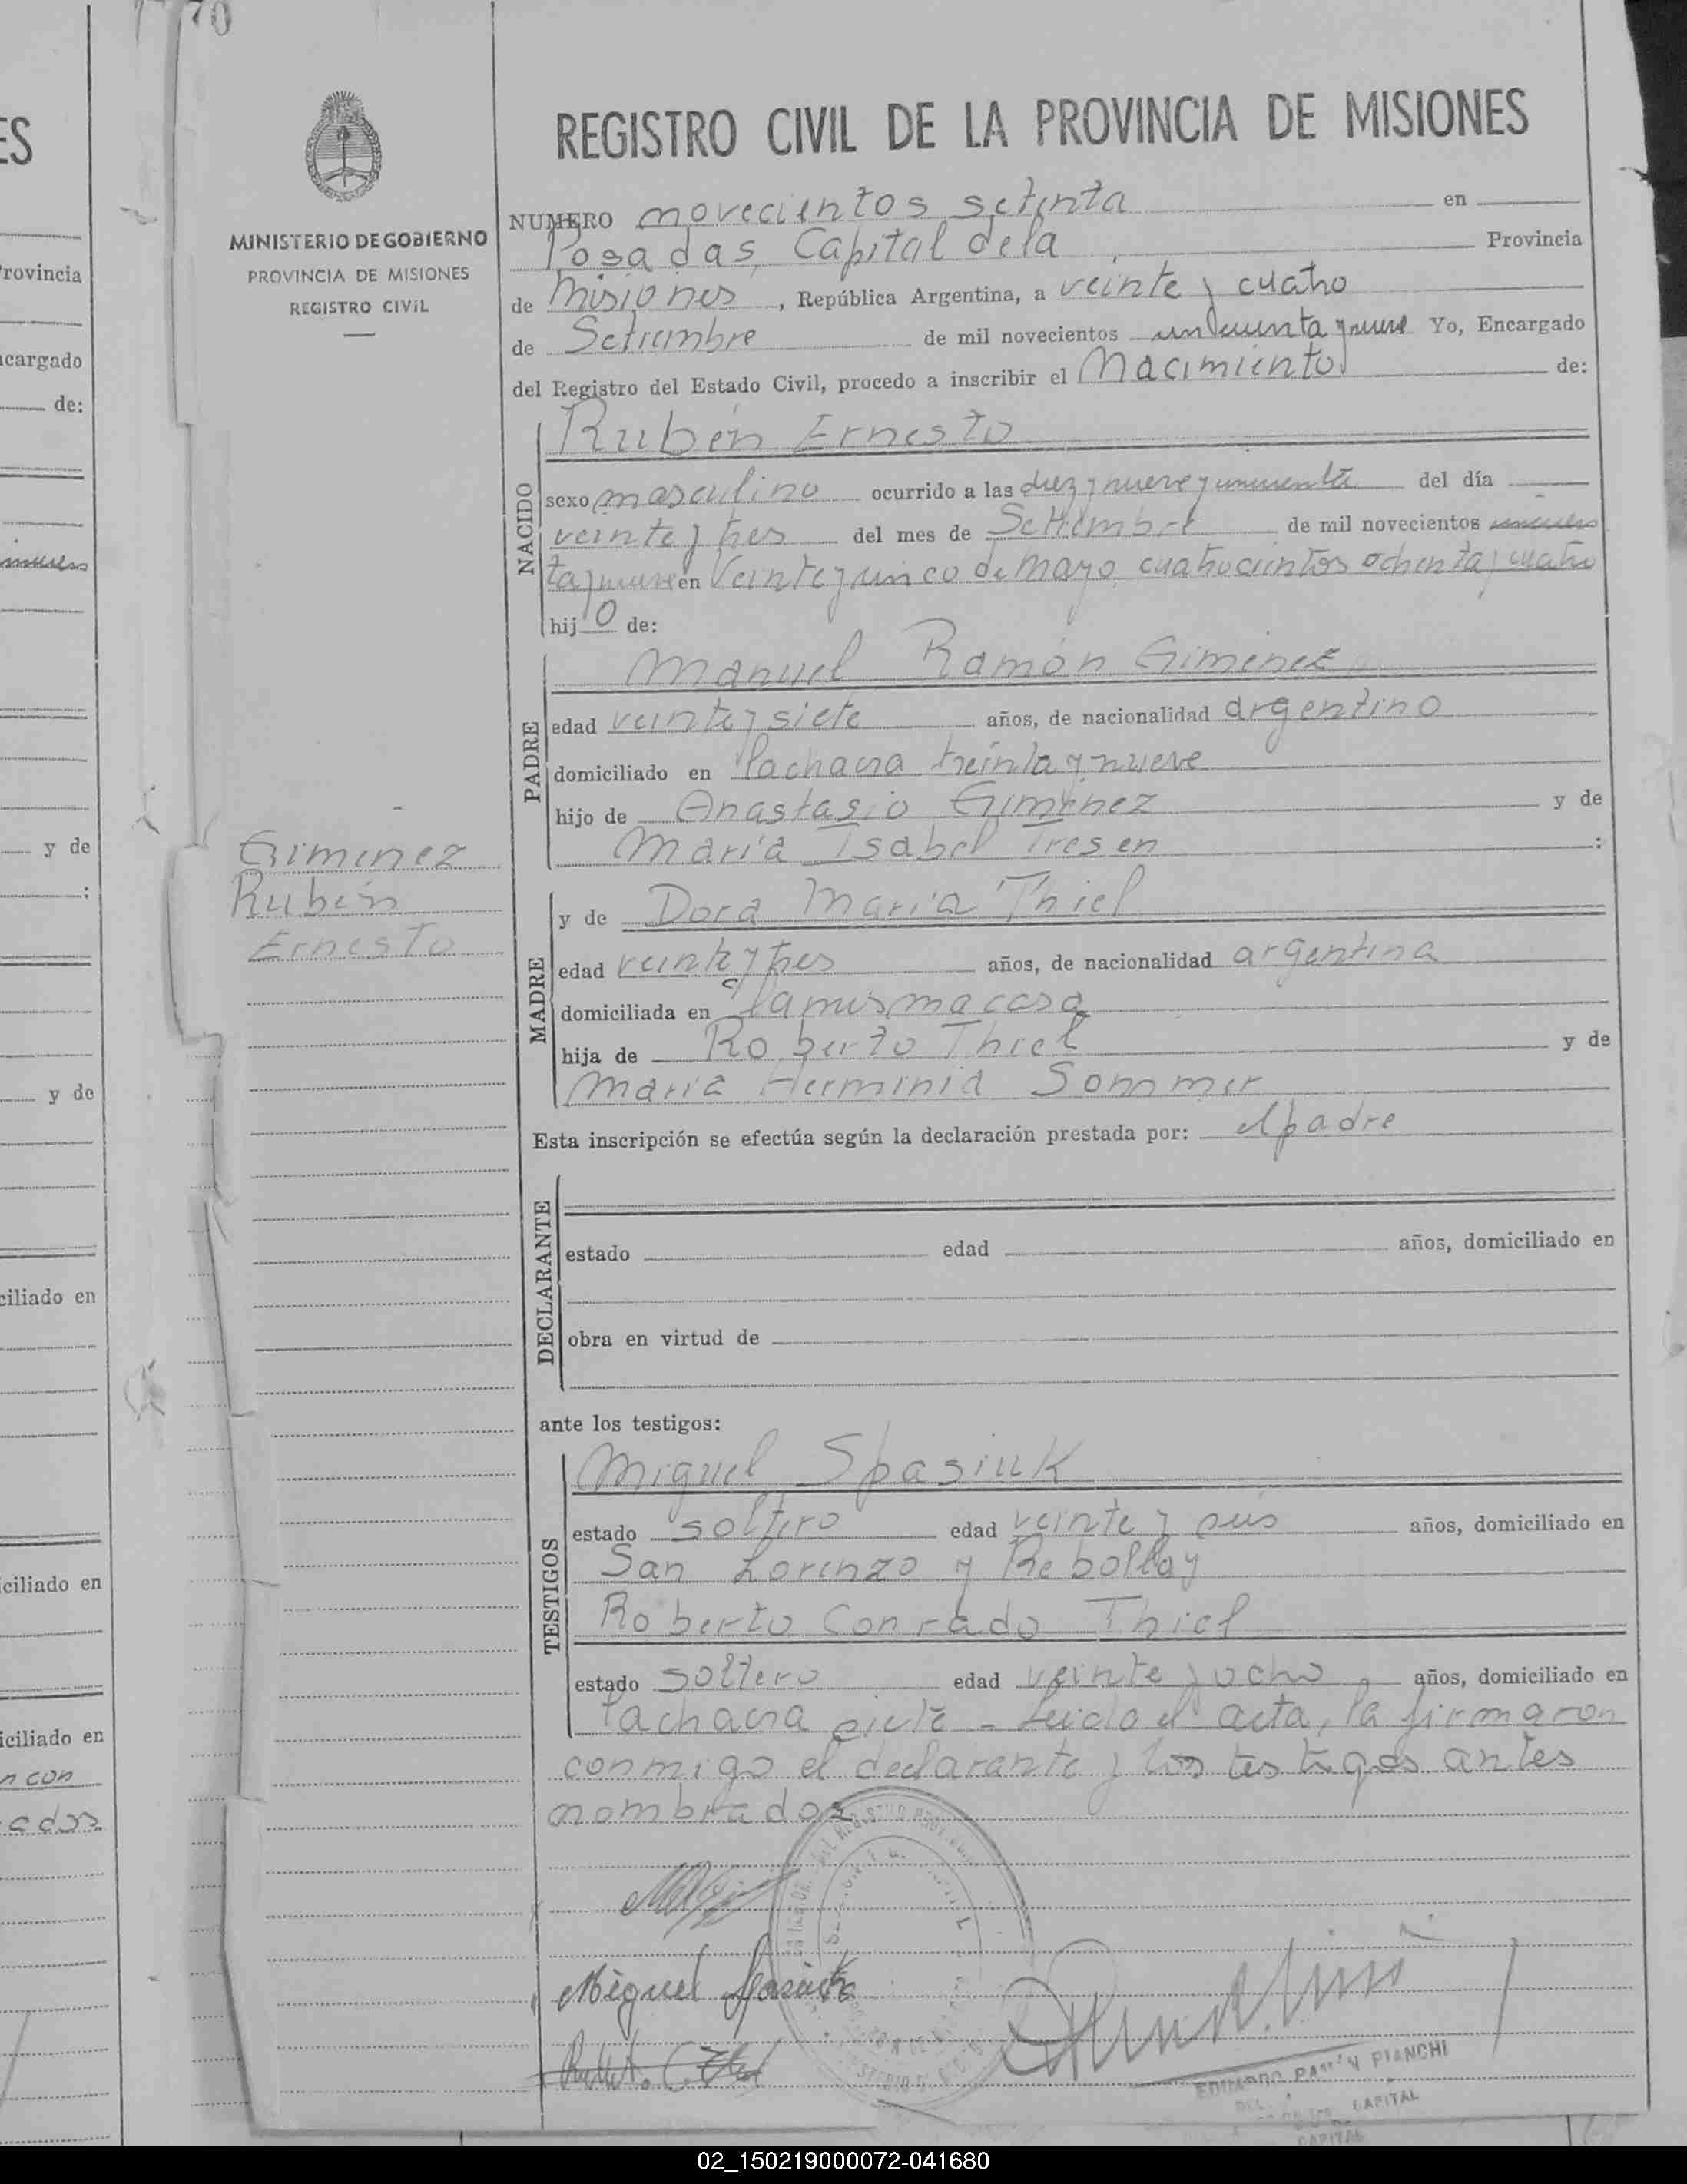 70
REGISTRO CIVIL DE LA PROVINCIA DE MISIONES
MINISTERIO DE GOBIERNO
PROVINCIA DE MISIONES
REGISTRO CIVIL
NUMERO novecientos setenta en
Posadas, Capital de la Provincia
de Misiones, República Argentina, a veinte y cuatro
de Setiembre de mil novecientos cincuenta y nueve Yo, Encargado
del Registro del Estado Civil, procedo a inscribir el Nacimiento de:
NACIDO
Rubén Ernesto
sexo masculino ocurrido a las diez y nueve y cincuenta del día
veinte y tres del mes de Setiembre de mil novecientos cincuen
ta y nueve en Veinte y cinco de Mayo cuatrocientos ochenta y cuatro
hijo de:
PADRE
Manuel Ramón Gimenez
edad veinte y siete años, de nacionalidad argentino
domiciliado en la chacra treinta y nueve
hijo de Anastasio Gimenez y de
María Isabel Tresen :
Gimenez
Rubén
Ernesto
MADRE
y de Dora María Thiel
edad veinte y tres años, de nacionalidad argentina
domiciliada en la misma casa
hija de Roberto Thiel y de
María Herminia Sommer
Esta inscripción se efectúa según la declaración prestada por: el padre
DECLARANTE
estado edad años, domiciliado en
obra en virtud de
ante los testigos:
TESTIGOS
Miguel Spasiuk
estado soltero edad veinte y seis años, domiciliado en
San Lorenzo y Rebollay
Roberto Conrado Thiel
estado soltero edad veinte y ocho años, domiciliado en
la chacra siete - Leida el acta, la firmaron
conmigo el declarante y los testigos antes
nombrados
Miguel Spasiuk
EDUARDO RAMÓN BIANCHI
CAPITAL
CAPITAL
ES
Provincia
ncargado
de:
y de
:
y de
ciliado en
ciliado en
iciliado en
n con
ados
02_150219000072-041680